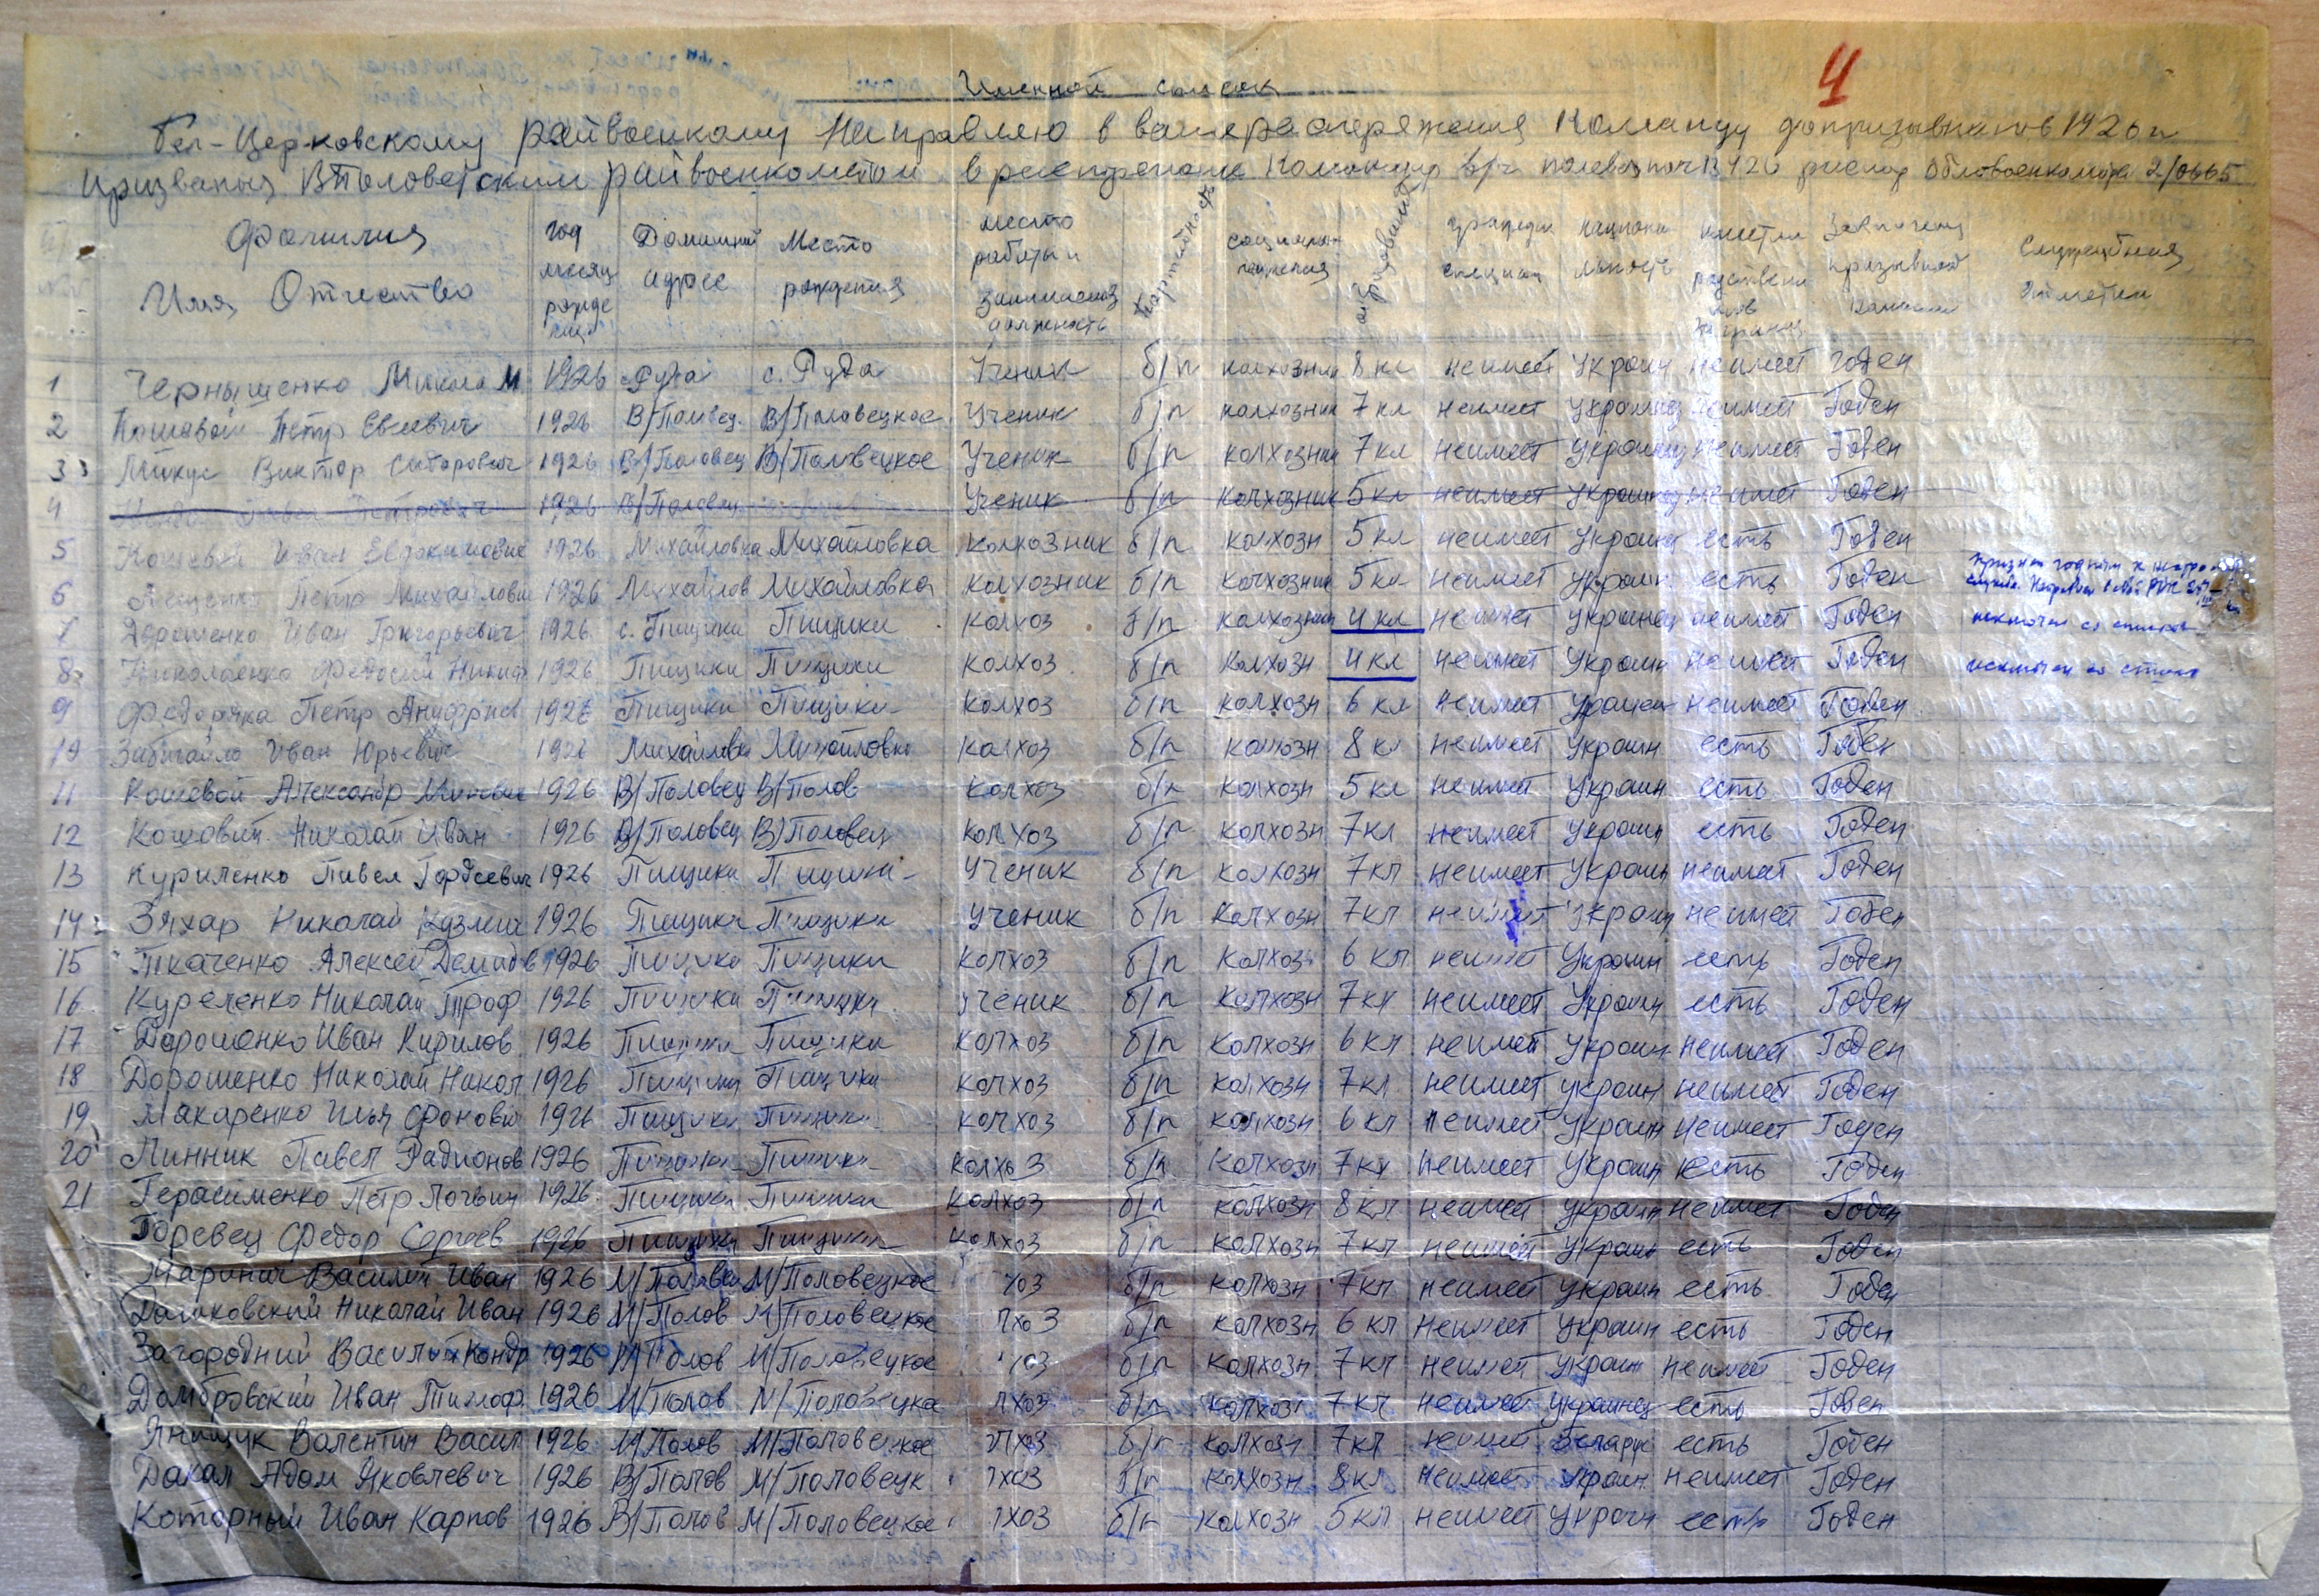 4
Именной список
Бел-Церковскому райвоенкому Направляю в ваше распоряжения Команду допризывников 1926 г
призваных В Половетским райвоенкоматом в Команду в/ч 2/0665
Фамилия Имя Отчество год месяц Домашний адрес Место рождения место работы и занимаемая должность партейность образований Заключения призывной Служебния отметки
1 Чернышенко Микола М 1926 с. Руда с. Руда Ученик б/п колхозни 8 кл неимеет Украин неимеет годен
2 Кошевой Петр Евсеевич 1926 В/Половец. В/Половецкое Ученик б/п колхозник 7 кл неимеет Украинец неимеет Годен
3 Микус Виктор Сидорович 1926 В/Половец В/Половецкое Ученик б/п колхозни 7 кл неимеет Украинец неимеет Годен
4 Павел Петрович 1926 В/Половец Ученик б/п колхозник 5 кл неимеет Украинец неимеет Годен
5 Кошевый Иван Евдокимович 1926 Михайловка Михайловка колхозник б/п колхозн 5 кл неимеет Украин есть Годен
6 Петр Михайлови 1926 Михайлов Михайловка колхозник б/п колхозник 5 кл неимеет Украин есть Годен
7 Дорошенко Иван Григорьевич 1926 с. Пищики Пищики колхоз б/п колхозник 4 кл неимеет Украинец неимеет Годен исключен со списков
8 Николаенко Федосий Никиф 1926 Пищики Пищики колхоз б/п колхозн 4 кл неимеет Украин неимеет Годен исключен со списка
9 Федоряка Петр 1926 Пищики Пищики колхоз б/п колхозн 6 кл неимеет Украин неимеет Годен
10 Забигайло Иван Юрьевич 1926 Михайловк Михайловк колхоз б/п колхозн 8 кл неимеет Украин есть Годен
11 Кошевой Александр 1926 В/Половец В/Полов колхоз б/п колхозн 5 кл неимеет Украин есть Годен
12 Кошовий Николай Иван 1926 В/Половец В/Половец колхоз б/п колхозн 7 кл неимеет Украин есть Годен
13 Куриленко Павел Гордеевич 1926 Пищики Пищики Ученик б/п колхозн 7 кл неимеет Украин неимеет Годен
14 Зяхар Николай Кузмич 1926 Пищики Пищики Ученик б/п колхозн 7 кл неимеет Украин неимеет Годен
15 Ткаченко Алексей Демидов 1926 Пищики Пищики колхоз б/п колхоз 6 кл неимеет Украин есть Годен
16 Куреленко Николай Троф 1926 Пищики Пищики ученик б/п колхозн 7 кл неимеет Украин есть Годен
17 Дорошенко Иван Кирилов 1926 Пищики Пищики колхоз б/п колхозн 6 кл неимеет Украин неимеет Годен
18 Дорошенко Николай Никол 1926 Пищики Пищики колхоз б/п колхозн 7 кл неимеет украин неимеет Годен
19 Макаренко Илья Фонови 1926 Пищики Пищики колхоз б/п колхозн 6 кл неимеет Украин неимеет Годен
20 Линник Павел Радионов 1926 Пищики Пищики колхоз б/п колхозн 7 кл неимеет Украин есть Годен
21 Герасименко Петр Логвин 1926 Пищики Пищики колхоз б/п колхозн 8 кл неимеет Украин неимеет Годен
Горевец Федор Сергеев 1926 Пищики Пищики колхоз б/п колхозн 7 кл неимеет Украин есть Годен
Маринич Василий Иван 1926 М/Половец М/Половецкое хоз б/п колхозн 7 кл неимеет Украин есть Годен
Дашковский Николай Иван 1926 М/Полов М/Половецкое лхоз б/п колхозн 6 кл неимеет Украин есть Годен
Загородний Василий Кондр 1926 М/Полов М/Половецкое хоз б/п колхозн 7 кл неимеет Украин неимеет Годен
Домбровский Иван Тимоф 1926 М/Полов М/Половецка лхоз б/п колхозн 7 кл неимеет Украинец есть Годен
Янищук Валентин Васил 1926 М/Полов М/Половецкое лхоз б/п колхозн 7 кл неимеет Беларус есть Годен
Дакал Адам Яковлевич 1926 В/Полов М/Половецк лхоз б/п колхозн 8 кл неимеет Украин неимеет Годен
Которный Иван Карпов 1926 В/Полов М/Половецкое лхоз б/п колхозн 5 кл неимеет Украин есть Годен